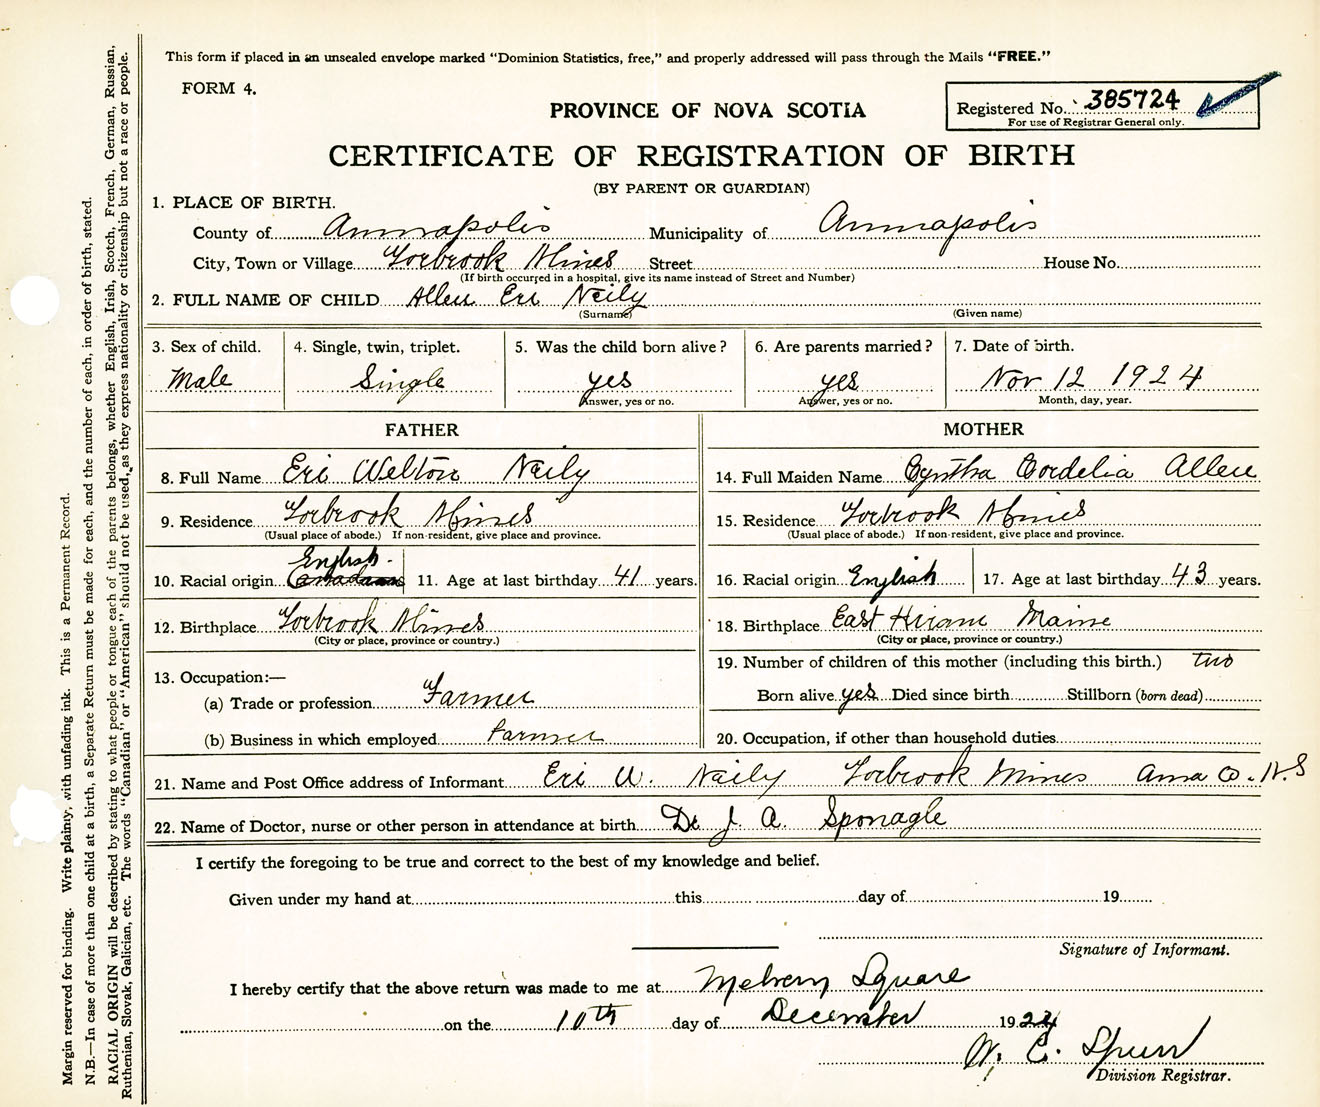 This form if placed in an unsealed envelope marked "Dominion Statistics, free," and properly addressed will pass through the Mails "FREE."
FORM 4.
PROVINCE OF NOVA SCOTIA
Registered No. 385724
For use of Registrar General only.
CERTIFICATE OF REGISTRATION OF BIRTH
(BY PARENT OR GUARDIAN)
1. PLACE OF BIRTH.
County of Annapolis Municipality of Annapolis
City, Town or Village Torbrook Mines Street House No.
(If birth occurred in a hospital, give its name instead of Street and Number)
2. FULL NAME OF CHILD Allen Eri Neily
(Surname) (Given name)
3. Sex of child. 4. Single, twin, triplet. 5. Was the child born alive? 6. Are parents married? 7. Date of birth.
Male Single yes yes Nov 12 1924
Answer, yes or no. Answer, yes or no. Month, day, year.
FATHER MOTHER
8. Full Name Eri Welton Neily 14. Full Maiden Name Cyntha Cordelia Allen
9. Residence Torbrook Mines 15. Residence Torbrook Mines
(Usual place of abode.) If non-resident, give place and province. (Usual place of abode.) If non-resident, give place and province.
English
10. Racial origin Canadian 11. Age at last birthday 41 years. 16. Racial origin English 17. Age at last birthday 43 years.
12. Birthplace Torbrook Mines 18. Birthplace East Hiram Maine
(City or place, province or country.) (City or place, province or country.)
19. Number of children of this mother (including this birth.) two
13. Occupation:—
(a) Trade or profession Farmer Born alive yes Died since birth Stillborn (born dead)
(b) Business in which employed Farmer 20. Occupation, if other than household duties
21. Name and Post Office address of Informant Eri W. Neily Torbrook Mines Anna Co. N.S
22. Name of Doctor, nurse or other person in attendance at birth Dr J. A. Sponagle
I certify the foregoing to be true and correct to the best of my knowledge and belief.
Given under my hand at this day of 19
Signature of Informant.
I hereby certify that the above return was made to me at Melvern Square
on the 10th day of December 1924
W. C. Spurr
Division Registrar.
Margin reserved for binding. Write plainly, with unfading ink. This is a Permanent Record.
N.B.—In case of more than one child at a birth, a Separate Return must be made for each, and the number of each, in order of birth, stated.
RACIAL ORIGIN will be described by stating to what people or tongue each of the parents belongs, whether English, Irish, Scotch, French, German, Russian,
Ruthenian, Slovak, Galician, etc. The words "Canadian" or "American" should not be used, as they express nationality or citizenship but not a race or people.